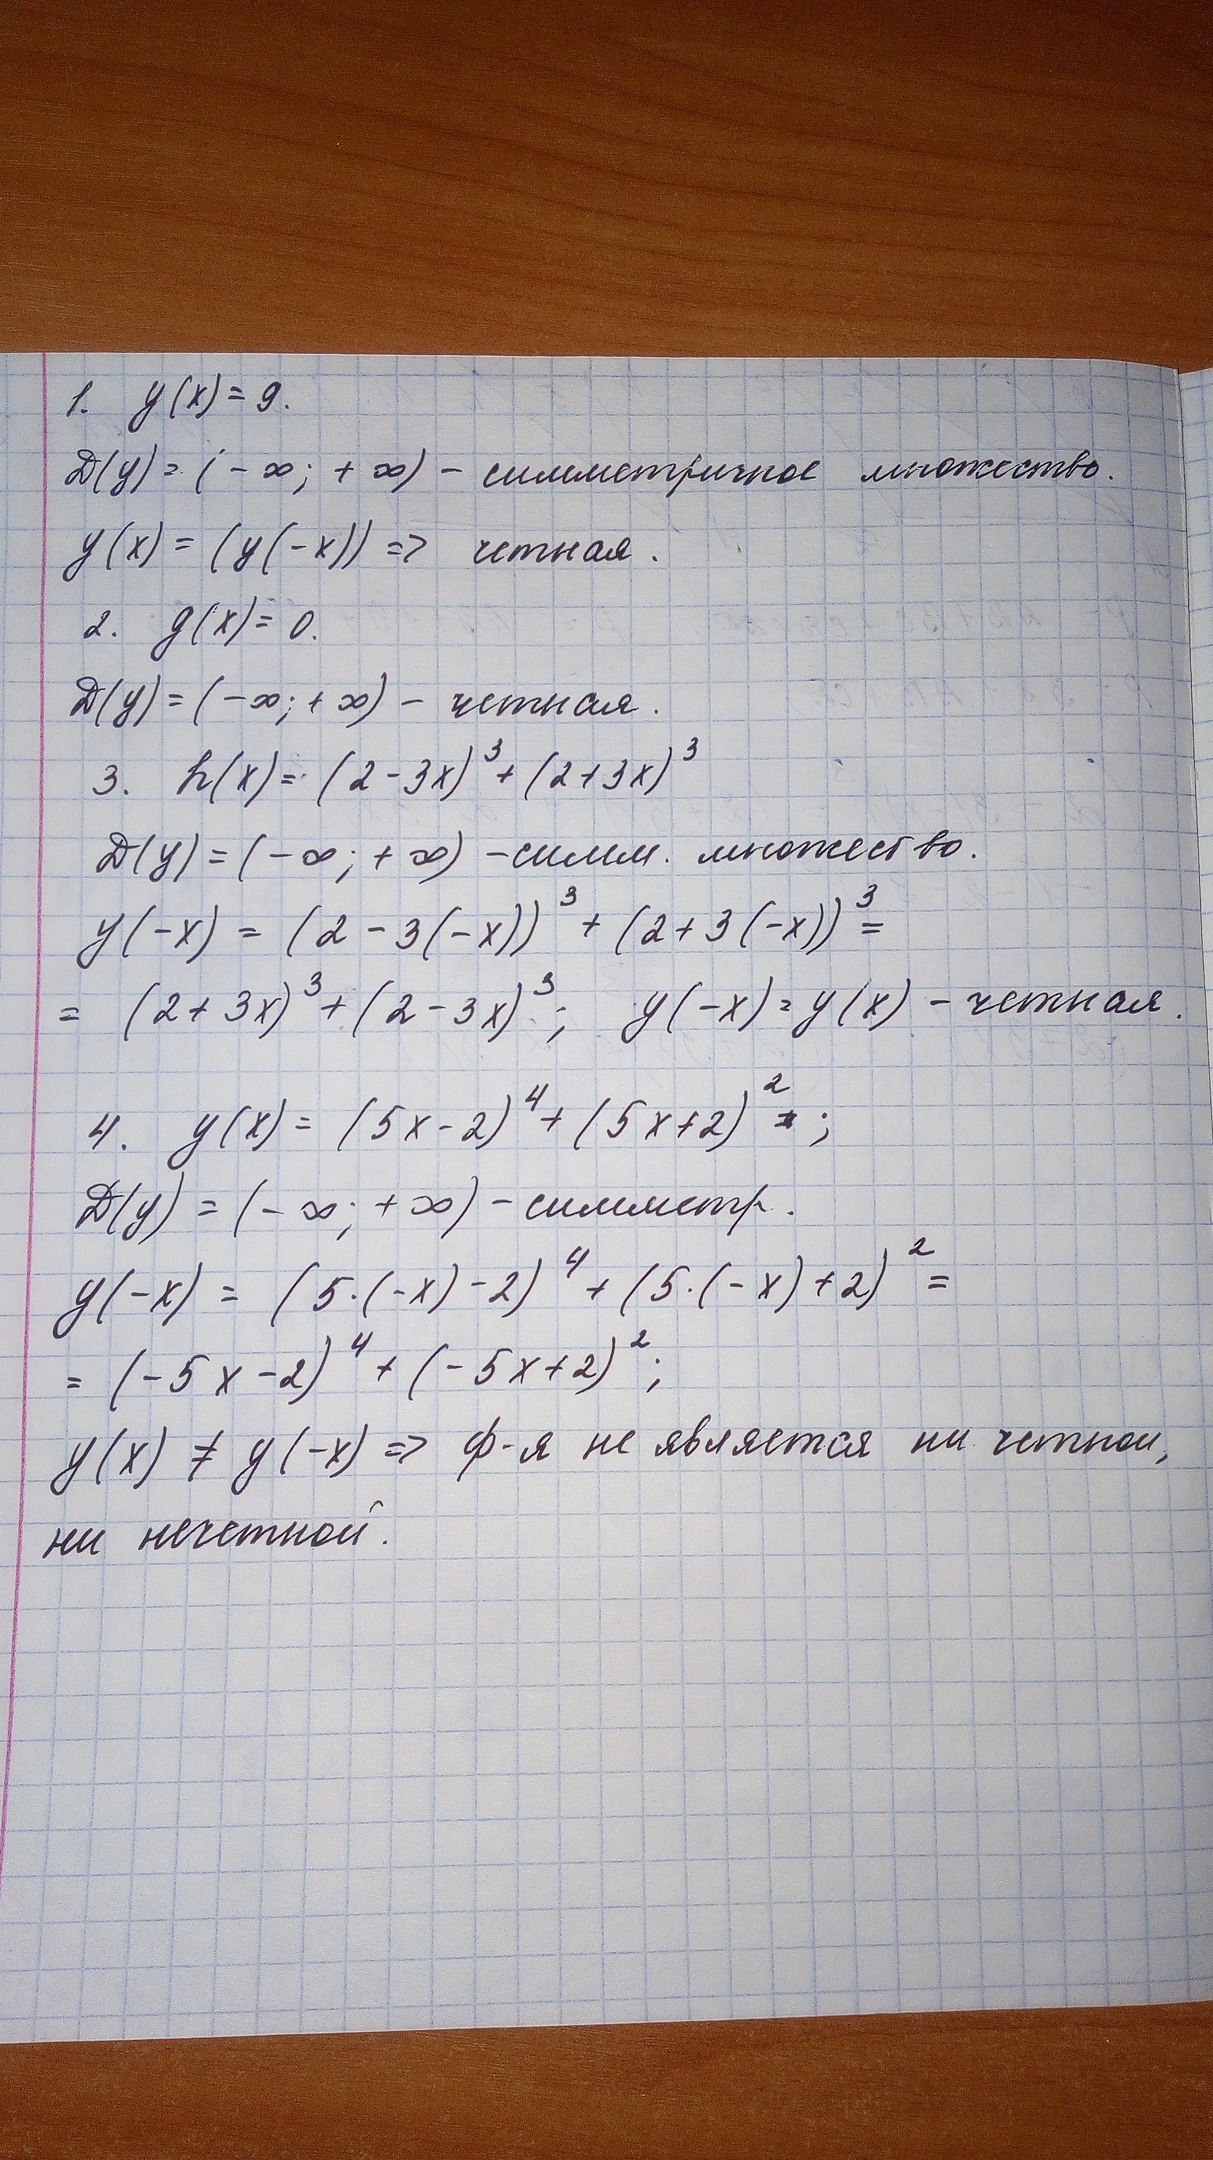 1. y(x) = 9.
D(y) = (-∞; +∞) - симметричное множество.
y(x) = (y(-x)) => четная.
2. g(x) = 0.
D(y) = (-∞; +∞) - четная.
3. h(x) = (2-3x)³ + (2+3x)³
D(y) = (-∞; +∞) - симм. множество.
y(-x) = (2-3(-x))³ + (2+3(-x))³ =
= (2+3x)³ + (2-3x)³; y(-x) = y(x) - четная.
4. y(x) = (5x-2)⁴ + (5x+2)² ;
D(y) = (-∞; +∞) - симметр.
y(-x) = (5·(-x)-2)⁴ + (5·(-x)+2)² =
= (-5x-2)⁴ + (-5x+2)²;
y(x) ≠ y(-x) => ф-я не является ни четной,
ни нечетной.